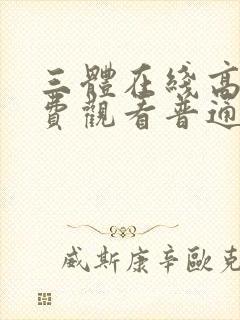 三體在綫高
費觀看普通
威斯康辛歐克